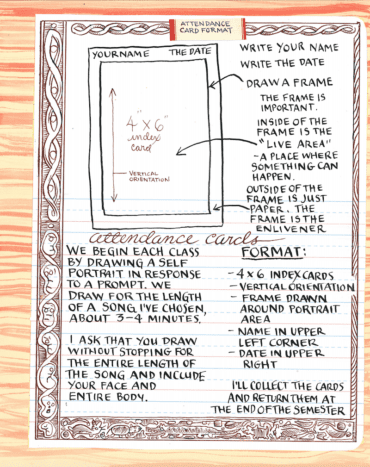 ATTENDANCE
CARD FORMAT
YOUR NAME THE DATE
4" x 6"
index
card
VERTICAL
ORIENTATION
WRITE YOUR NAME
WRITE THE DATE
DRAW A FRAME
THE FRAME IS
IMPORTANT.
INSIDE OF THE
FRAME IS THE
"LIVE AREA"
-A PLACE WHERE
SOMETHING CAN
HAPPEN.
OUTSIDE OF THE
FRAME IS JUST
PAPER. THE
FRAME IS THE
ENLIVENER
attendance cards
WE BEGIN EACH CLASS
BY DRAWING A SELF
PORTRAIT IN RESPONSE
TO A PROMPT. WE
DRAW FOR THE LENGTH
OF A SONG I'VE CHOSEN,
ABOUT 3-4 MINUTES.
I ASK THAT YOU DRAW
WITHOUT STOPPING FOR
THE ENTIRE LENGTH OF
THE SONG AND INCLUDE
YOUR FACE AND
ENTIRE BODY.
FORMAT:
-4 x 6 INDEX CARDS
-VERTICAL ORIENTATION
- FRAME DRAWN
AROUND PORTRAIT
AREA
- NAME IN UPPER
LEFT CORNER
- DATE IN UPPER
RIGHT
I'LL COLLECT THE CARDS
AND RETURN THEM AT
THE END OF THE SEMESTER